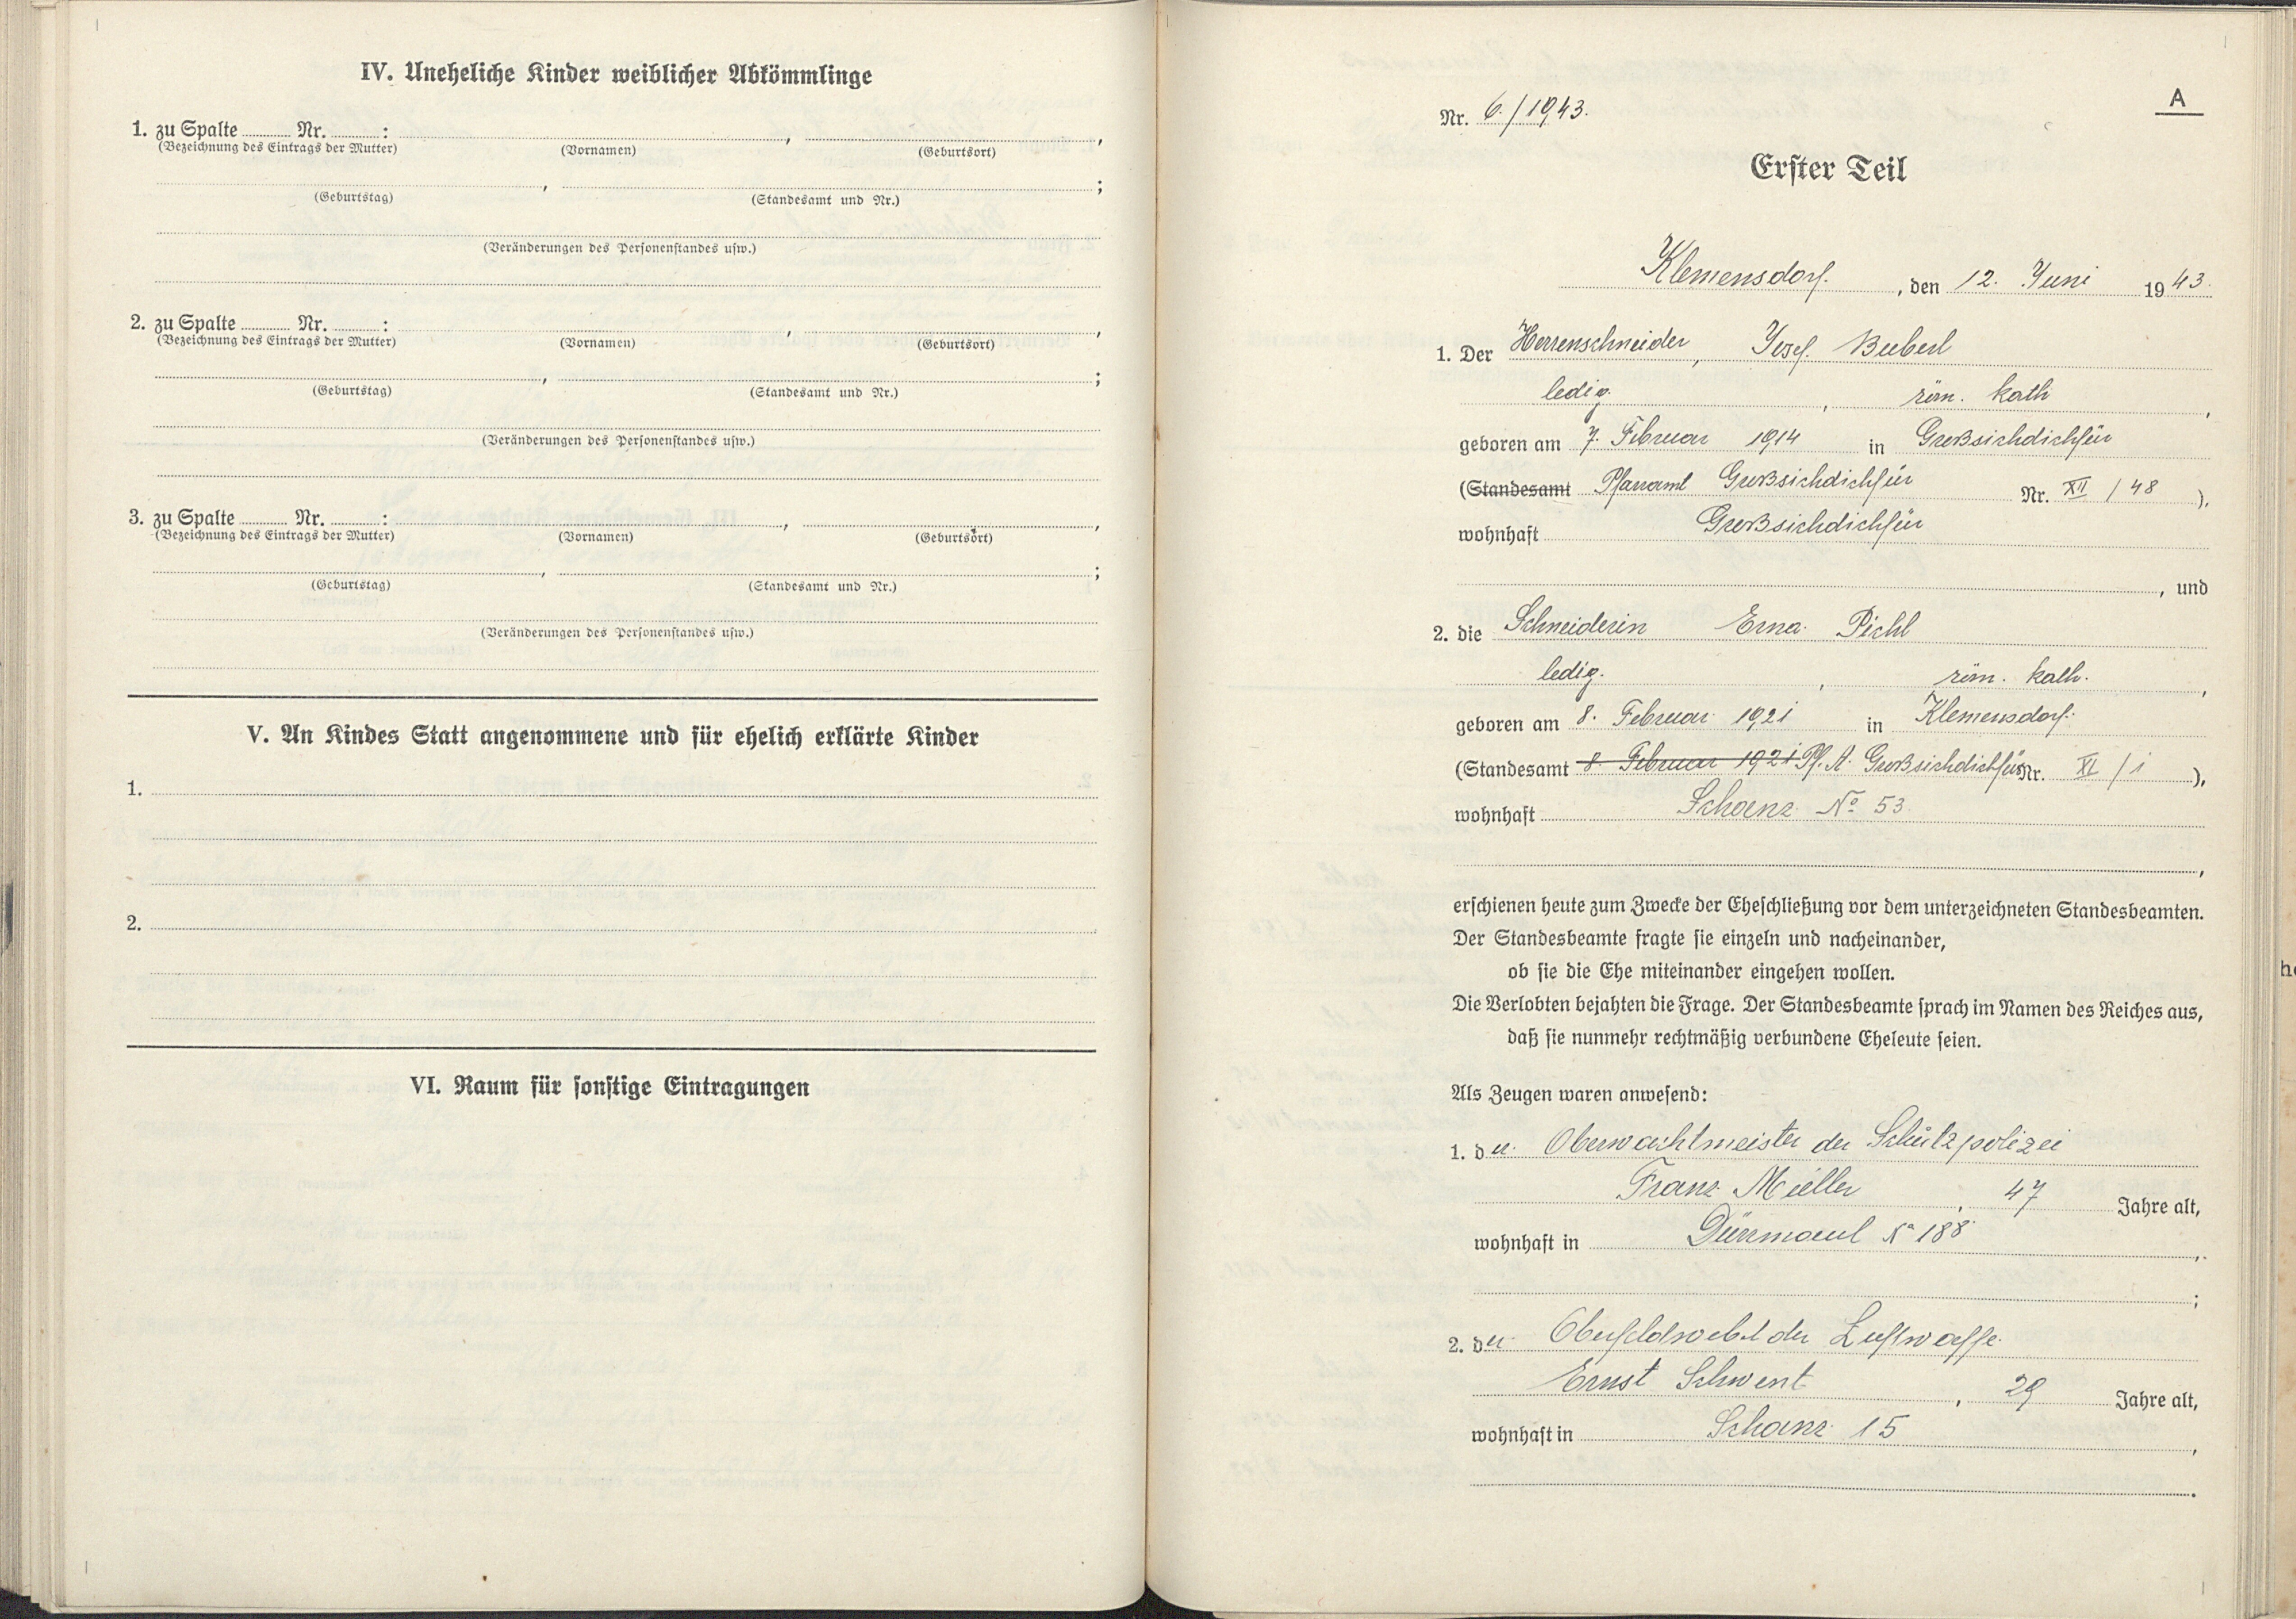 IV. Uneheliche Kinder weiblicher Abkömmlinge
1. zu Spalte Nr. : , ,
(Bezeichnung des Eintrags der Mutter) (Vornamen) (Geburtsort)
, ;
(Geburtstag) (Standesamt und Nr.)
(Veränderungen des Personenstandes usw.)
2. zu Spalte Nr. : , ,
(Bezeichnung des Eintrags der Mutter) (Vornamen) (Geburtsort)
, ;
(Geburtstag) (Standesamt und Nr.)
(Veränderungen des Personenstandes usw.)
3. zu Spalte Nr. : , ,
(Bezeichnung des Eintrags der Mutter) (Vornamen) (Geburtsort)
, ;
(Geburtstag) (Standesamt und Nr.)
(Veränderungen des Personenstandes usw.)
V. An Kindes Statt angenommene und für ehelich erklärte Kinder
1.
2.
VI. Raum für sonstige Eintragungen
A
Nr. 6./1943.
Erster Teil
Klemensdorf. , den 12. Juni 1943.
1. Der Herrenschneider, Josef Beberl
ledig. , röm. kath ,
geboren am 7. Februar 1914 in Großsichdichfür
(Standesamt Pfarramt Großsichdichfür Nr. XII / 48 ),
wohnhaft Großsichdichfür
, und
2. die Schneiderin Erna Pichl
ledig. , röm. kath. ,
geboren am 8. Februar 1921 in Klemensdorf.
(Standesamt 8. Februar 1921 Pf. A. Großsichdichfür Nr. XI / 1 ),
wohnhaft Schanz No 53
,
erschienen heute zum Zwecke der Eheschließung vor dem unterzeichneten Standesbeamten.
Der Standesbeamte fragte sie einzeln und nacheinander,
ob sie die Ehe miteinander eingehen wollen.
Die Verlobten bejahten die Frage. Der Standesbeamte sprach im Namen des Reiches aus,
daß sie nunmehr rechtmäßig verbundene Eheleute seien.
Als Zeugen waren anwesend:
1. der Oberwachtmeister der Schutzpolizei
Franz Müller , 47 Jahre alt,
wohnhaft in Dürrmaul No 188 ,
;
2. der Oberfeldwebel der Luftwaffe
Ernst Schwent , 29 Jahre alt,
wohnhaft in Schanz 15 ,
.